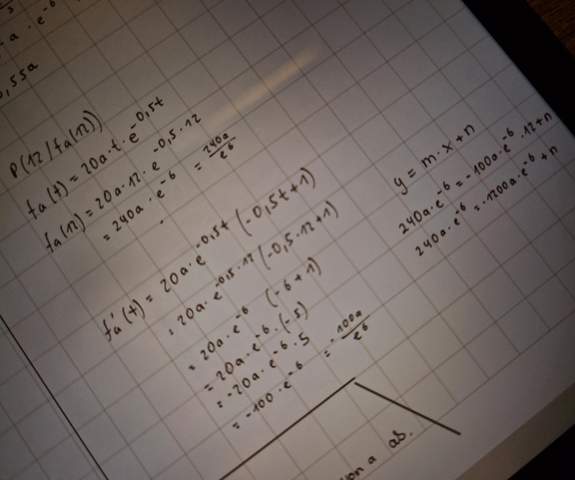 a · e^-6
0,55a
P(12/fa(12))
fa(t) = 20a · t · e^-0,5t
fa(12) = 20a · 12 · e^-0,5 · 12
= 240a · e^-6 = 240a/e^6
fa'(t) = 20a · e^-0,5t (-0,5t+1)
= 20a · e^-0,5 · 12 (-0,5 · 12+1)
= 20a · e^-6 (-6+1)
= 20a · e^-6 · (-5)
= -20a · e^-6 · 5
= -100 · e^-6 = -100a/e^6
y = m · x + n
240a · e^-6 = -100a · e^-6 · 12 + n
240a · e^-6 = -1200a · e^-6 + n
a ab.